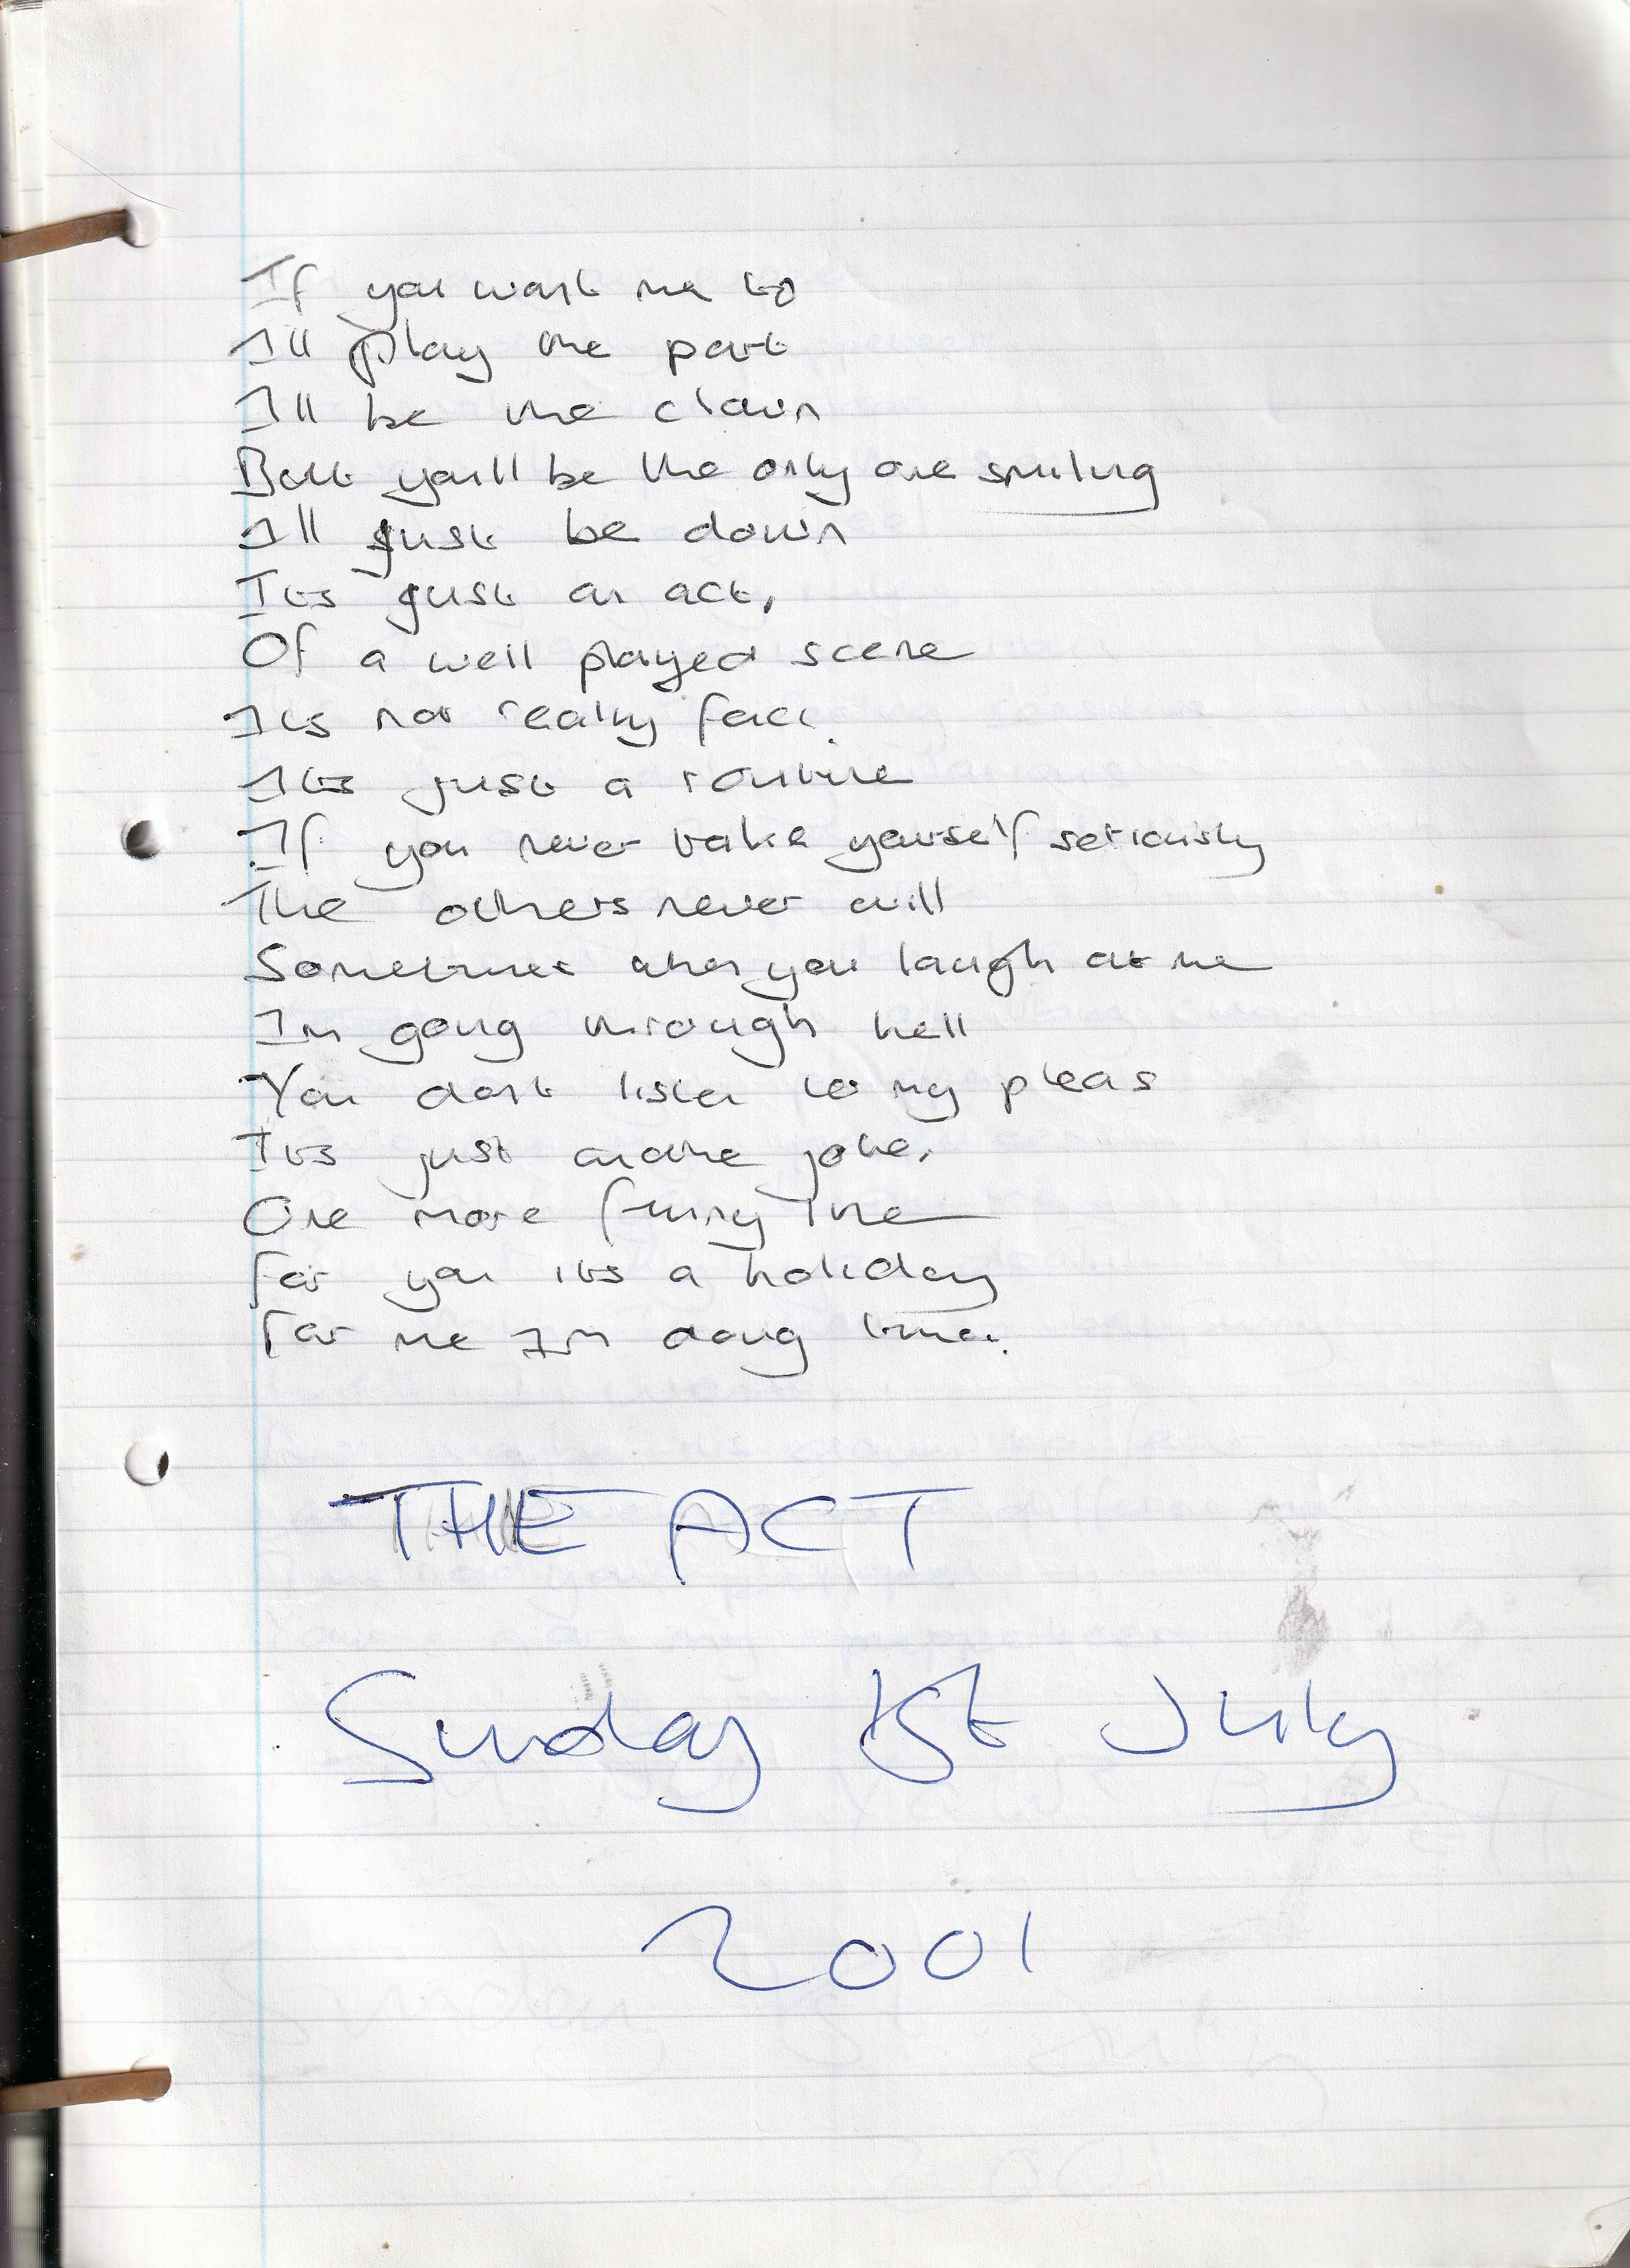 If you want me to
I'll play the part
I'll be the clown
But you'll be the only one smiling
I'll just be down
Its just an act,
Of a well played scene
Its not really fact.
Its just a routine
If you never take yourself seriously
The others never will
Sometimes when you laugh at me
Im going through hell
You dont listen to my pleas
Its just another joke,
One more funny line
For you its a holiday
For me Im doing time.
THE ACT
Sunday 1st July
2001